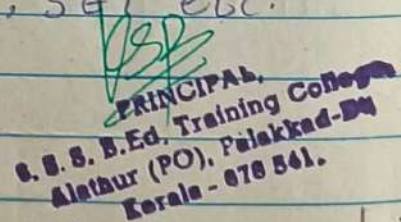 , SET etc.
PRINCIPAL,
B.Ed. Training College
Alathur (PO), Palakkad-Dt
Kerala - 678 541.